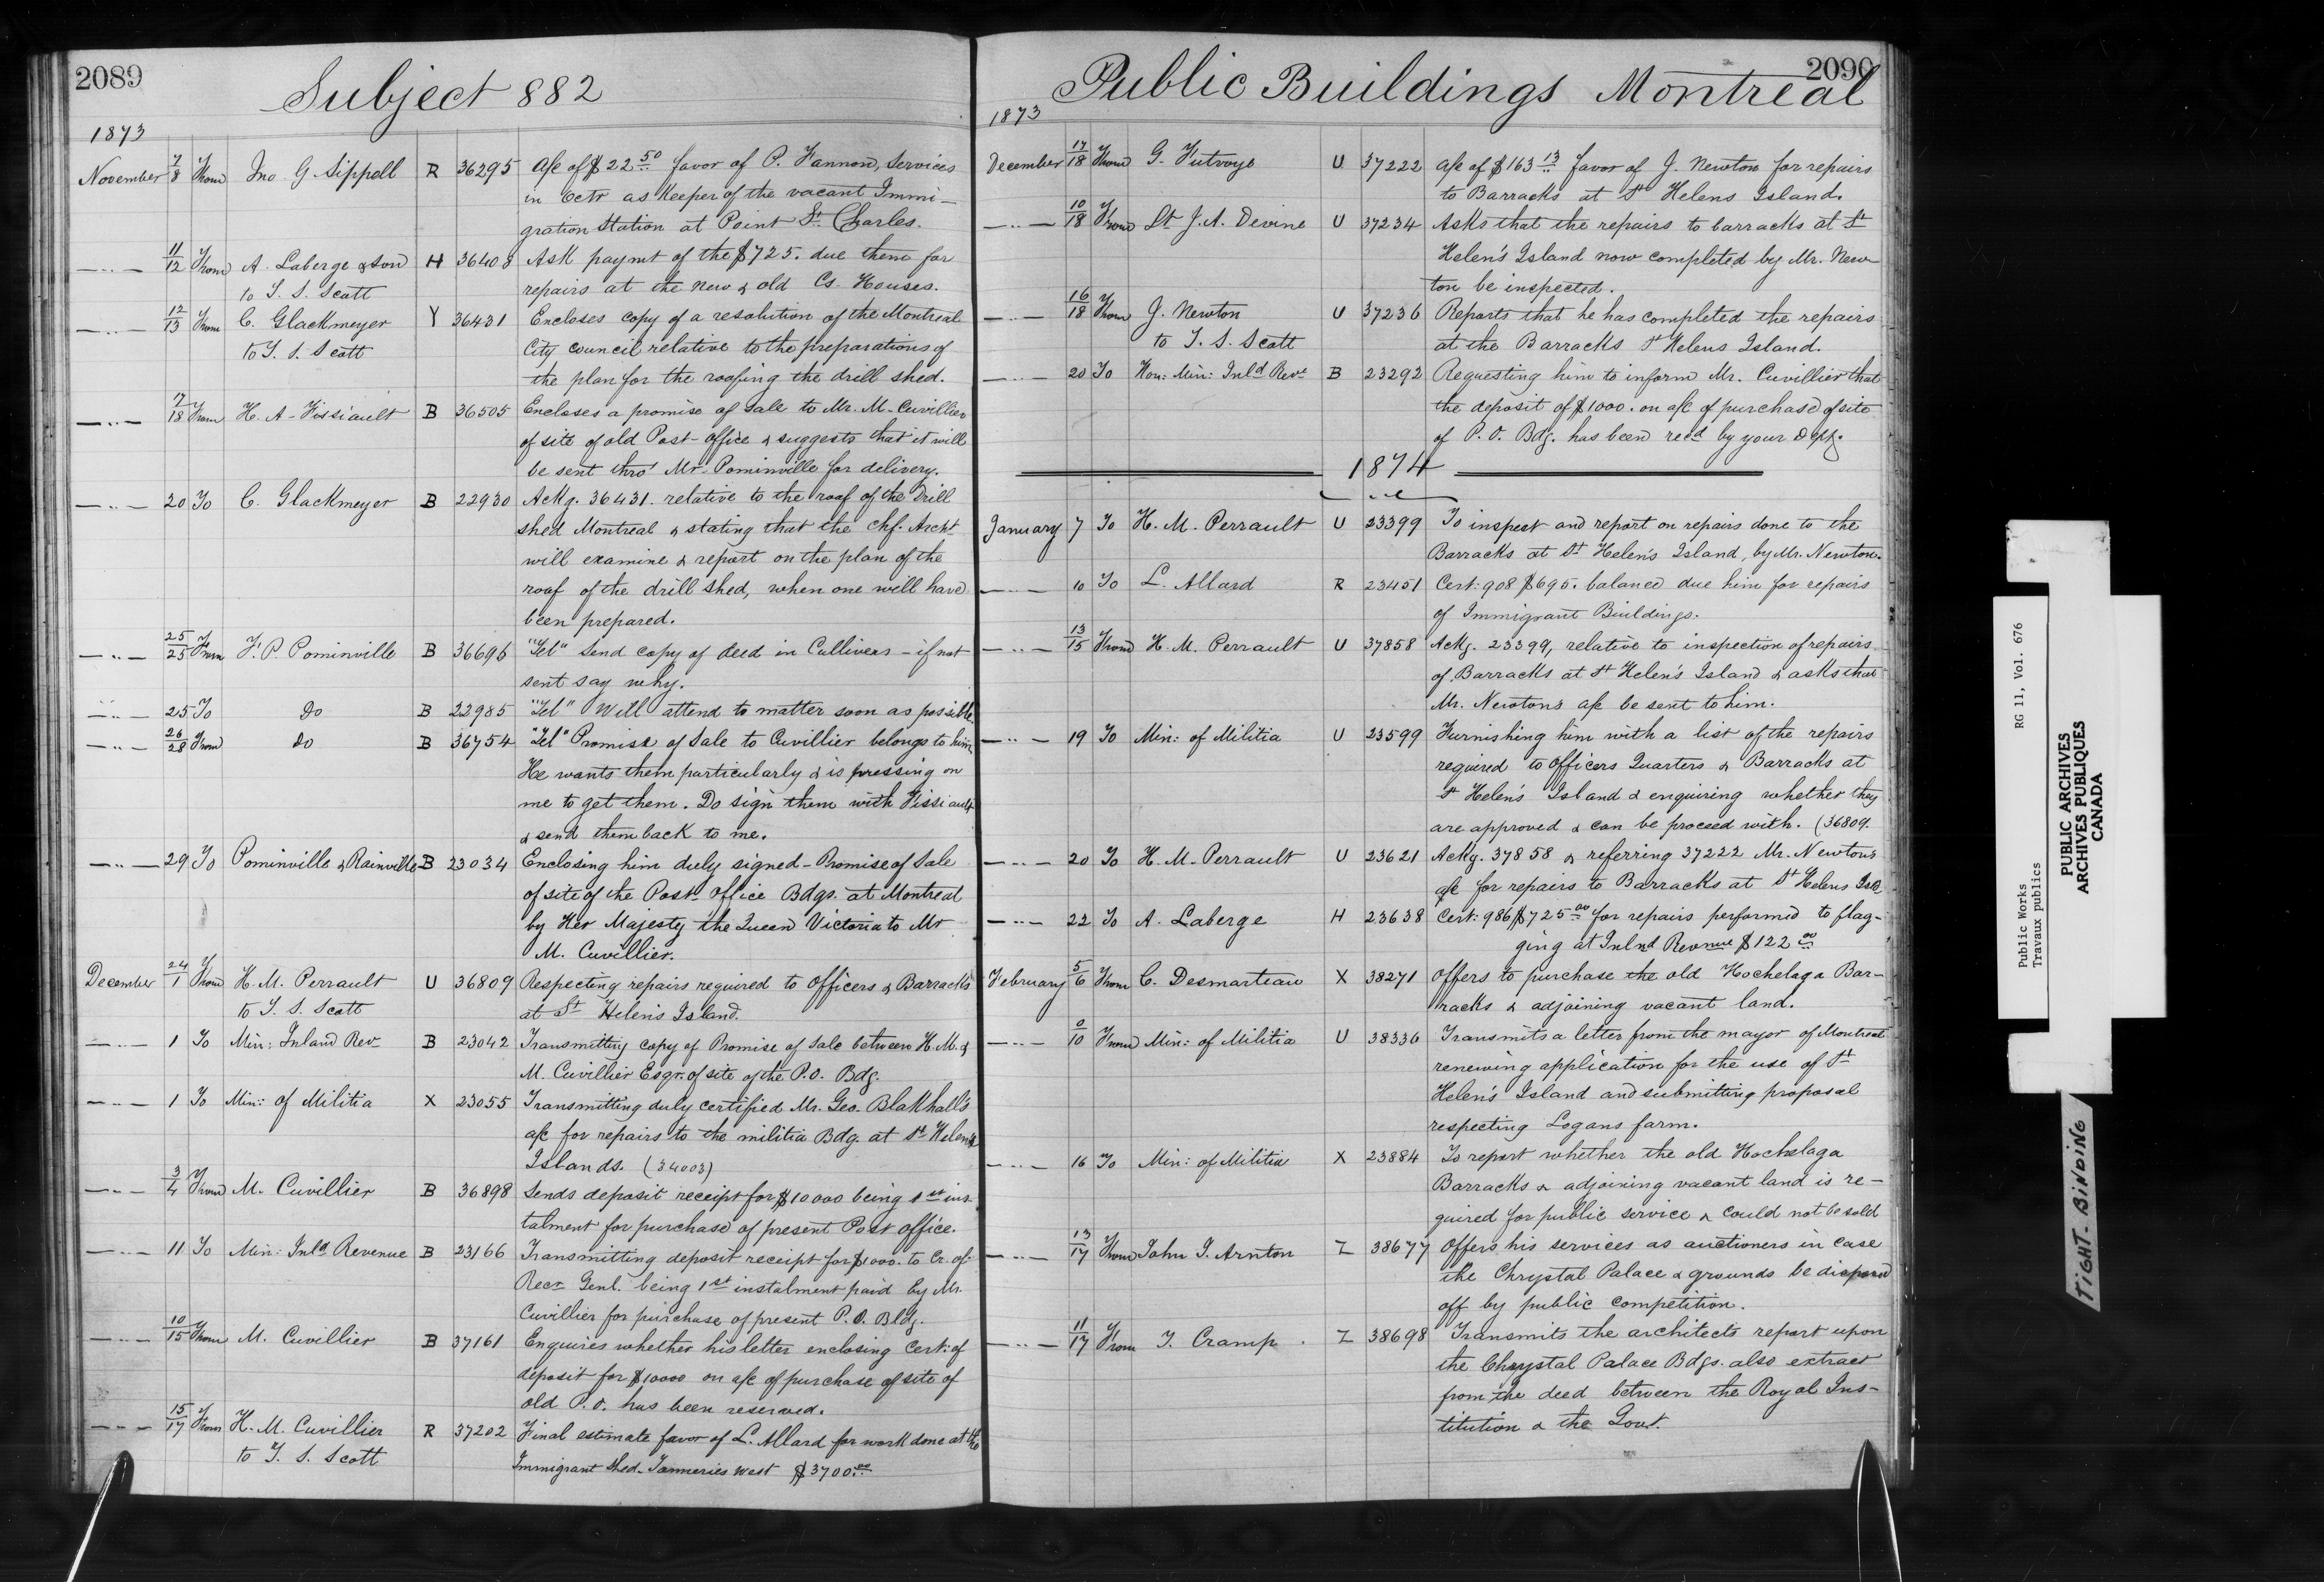 2089
Subject 882
1873
November 7/8 From Jno G Sippell R 36295 a/c of $22.50 favor of P. Hannon, services
in Octr as Keeper of the vacant Immi-
gration Station at Point St. Charles.
—"— 11/12 From A. Laberge & son H 36408 Ask paymt of the $725. due them for
to T. S. Scott repairs at the new & old Cs. Houses.
—"— 12/13 From C. Glackmeyer Y 36431 Encloses copy of a resolution of the Montreal
to T. S. Scott City Council relative to the preparations of
the plan for the roofing the drill shed.
—"— 7/18 From H. A. Fissiault B 36505 Encloses a promise of sale to Mr. M. Cuvillier
of site of old Post-office & suggests that it will
be sent thro' Mr. Pominville for delivery.
—"— 20 To C. Glackmeyer B 22930 Ackg. 36431. relative to the roof of the Drill
shed Montreal & stating that the Chf. Archt
will examine & report on the plan of the
roof of the drill shed, when one will have
been prepared.
—"— 25/25 From F. P. Pominville B 36696 "Tel" Send copy of deed in Cullivers - if not
sent say why.
—"— 25 To Do B 22985 "Tel" Will attend to matter soon as possible
—"— 26/28 From do B 36754 "Tel" Promise of Sale to Cuvillier belongs to him
He wants them particularly & is pressing on
me to get them. Do sign them with Fissiault
& send them back to me.
—"— 29 To Pominville & Rainville B 23034 Enclosing him duly signed - Promise of Sale
of site of the Post Office Bdgs. at Montreal
by Her Majesty the Queen Victoria to Mr
M. Cuvillier.
December 24/1 From H. M. Perrault U 36809 Respecting repairs required to Officers & Barracks
to T. S. Scott at St Helen's Island.
—"— 1 To Min: Inland Rev B 23042 Transmitting copy of Promise of Sale between H.M. &
M. Cuvillier Esqr. of site of the P.O. Bdg.
—"— 1 To Min: of Militia X 23055 Transmitting duly certified Mr. Geo. Blakhall's
a/c for repairs to the militia Bdg. at St Helens
Islands. (34003)
—"— 3/4 From M. Cuvillier B 36898 Sends deposit receipt for $10000 being 1st ins-
talment for purchase of present Post office.
—"— 11 To Min: Inld Revenue B 23166 Transmitting deposit receipt for $1000. to Cr. of
Recr Genl. being 1st instalment paid by Mr.
Cuvillier for purchase of present P.O. Bldg.
—"— 10/15 From M. Cuvillier B 37161 Enquires whether his letter enclosing Cert: of
deposit for $10000 on a/c of purchase of site of
old P.O. has been reserved.
—"— 15/17 From H. M. Cuvillier R 37202 Final estimate favor of L. Allard for work done at the
to T. S. Scott Immigrant Shed - Tanneries West $3700.00
2090
Public Buildings Montreal
1873
December 17/18 From G. Futvoye U 37222 a/c of $163.13 favor of J. Newton for repairs
to Barracks at St Helens Island.
—"— 10/18 From Lt J. A. Devine U 37234 Asks that the repairs to barracks at St
Helen's Island now completed by Mr. New-
ton be inspected.
—"— 16/18 From J. Newton U 37236 Reports that he has completed the repairs
to T. S. Scott at the Barracks St Helens Island.
—"— 20 To Hon: Min: Inld Reve B 23292 Requesting him to inform Mr. Cuvillier that
the deposit of $1000. on a/c of purchase of site
of P.O. Bdg. has been recd by your Dept.
1874
January 7 To H. M. Perrault U 23399 To inspect and report on repairs done to the
Barracks at St Helen's Island, by Mr. Newton.
—"— 10 To L. Allard R 23451 Cert: 908 $695. balance due him for repairs
of Immigrant Buildings.
—"— 13/15 From H. M. Perrault U 37858 Ackg. 23399, relative to inspection of repairs
of Barracks at St Helen's Island & asks that
Mr. Newtons a/c be sent to him.
—"— 19 To Min: of Militia U 23599 Furnishing him with a list of the repairs
required to Officers Quarters & Barracks at
St Helen's Island & enquiring whether they
are approved & can be proceed with. (36809.
—"— 20 To H. M. Perrault U 23621 Ackg. 37858 & referring 37222 Mr. Newtons
a/c for repairs to Barracks at St Helens Isld
—"— 22 To A. Laberge H 23638 Cert: 986 $725.00 for repairs performed to flag-
ging at Inlnd Revenue $122.00
February 5/6 From C. Desmarteau X 38271 Offers to purchase the old Hochelaga Bar-
racks & adjoining vacant land.
—"— 9/10 From Min: of Militia U 38336 Transmits a letter from the mayor of Montreal
renewing application for the use of St
Helen's Island and submitting proposal
respecting Logans farm.
—"— 16 To Min: of Militia X 23884 To report whether the old Hochelaga
Barracks & adjoining vacant land is re-
quired for public service & could not be sold
—"— 13/17 From John J. Arnton Z 38677 Offers his services as auctioners in case
the Chrystal Palace & grounds be disposed
off by public competition.
—"— 11/17 From T. Cramp Z 38698 Transmits the architects report upon
the Chrystal Palace Bdgs. also extract
from the deed between the Royal Ins-
titution & the Govt.
Public Works RG 11, Vol. 676
Travaux publics
PUBLIC ARCHIVES
ARCHIVES PUBLIQUES
CANADA
TIGHT-BINDING